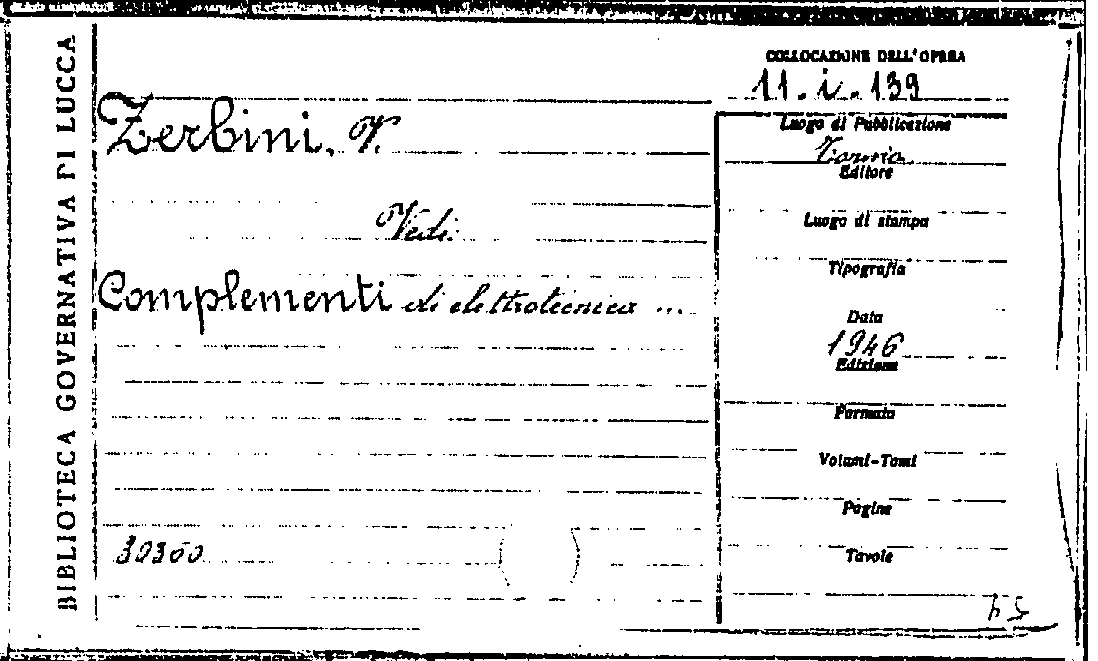 BIBLIOTECA GOVERNATIVA DI LUCCA
COLLOCAZIONE DELL'OPERA
11. i. 139
Zerbini, V.
Vedi:
Complementi di elettrotecnica ...
30360
Luogo di Pubblicazione
Editore
Luogo di stampa
Tipografia
Data
1946
Edizione
Formato
Volumi-Tomi
Pagine
Tavole